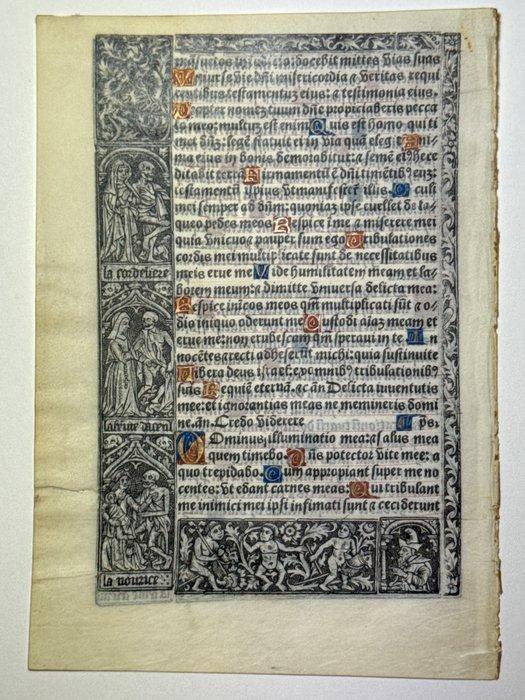 docebit mittes vias suas
Uniuerse vie dñi misericordia ⁊ veritas requi
rentibus testamentuz eius: ⁊ testimonia eius.
Propter nomez tuum dñe propiciaberis pecca
to meo: multuz est enim Quis est homo qui ti
met dñz: legẽ statuit ei in via quã elegit Ani-
ma eius in bonis demorabitur: ⁊ semẽ ei⁹ here
ditabit terrã Firmamentũ ẽ dñs timẽtib⁹ euz:
testamentũ ipsius vt manifestet illis. Oculi
mei semper ad dñm: quoniaz ipse euellet de la-
queo pedes meos Respice ĩ me ⁊ miserere mei
quia vnicus ⁊ pauper sum ego Tribulationes
cordis mei multiplicate sunt de necessitatibus
meis erue me Vide humilitatem meam et la-
borem meum: ⁊ dimitte vniuersa delicta mea:
Respice inicos meos qm̃ multiplicati sũt ⁊ o-
dio iniquo oderunt me Custodi aiaz meam et
erue me: non erubescam qm̃ speraui in te In
nocẽtes ⁊ recti adheserũt michi: quia sustinui te
Libera deus israel: ex omnib⁹ tribulationib⁹
suis Requiẽ eternã. ⁊c añ Delicta iuuentutis
mee: et ignorantias meas ne memineris domi
ne. añ. Credo videre ps.
Dominus illuminatio mea: ⁊ salus mea
quem timebo. Dñs protector vite mee: a
quo trepidabo. Dum appropiant super me no
centes: vt edant carnes meas: Qui tribulant
me inimici mei ipsi infimati sunt ⁊ ceciderunt
la cordeliere
la nourice